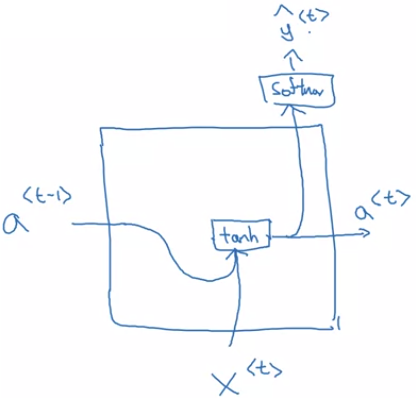 ŷ<t>
softmax
a<t-1>
tanh
a<t>
x<t>